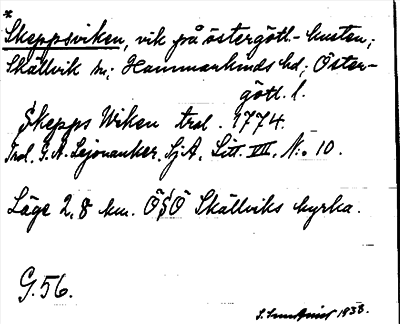 *
Skeppsviken, vik på östergötl.-kusten;
Skällvik sn; Hammarkinds hd; Öster-
götl. l.
Skepps Wiken trol. 1774.
Trol. G. A. Lejonanker. SjA, Litt. VII, N:o 10.
Läge 2,8 km. ÖSÖ Skällviks kyrka.
G. 56.
1938.